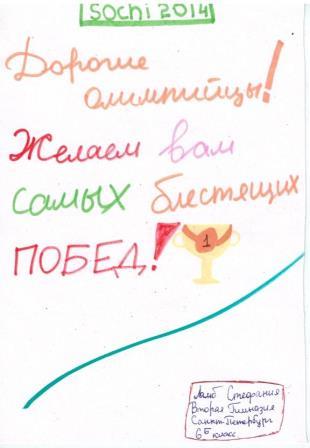 SOCHI 2014
Дорогие
олимпийцы!
Желаем вам
самых блестящих
ПОБЕД!
1
Ламб Стефания
Вторая Гимназия
Санкт-Петербург
6Б класс